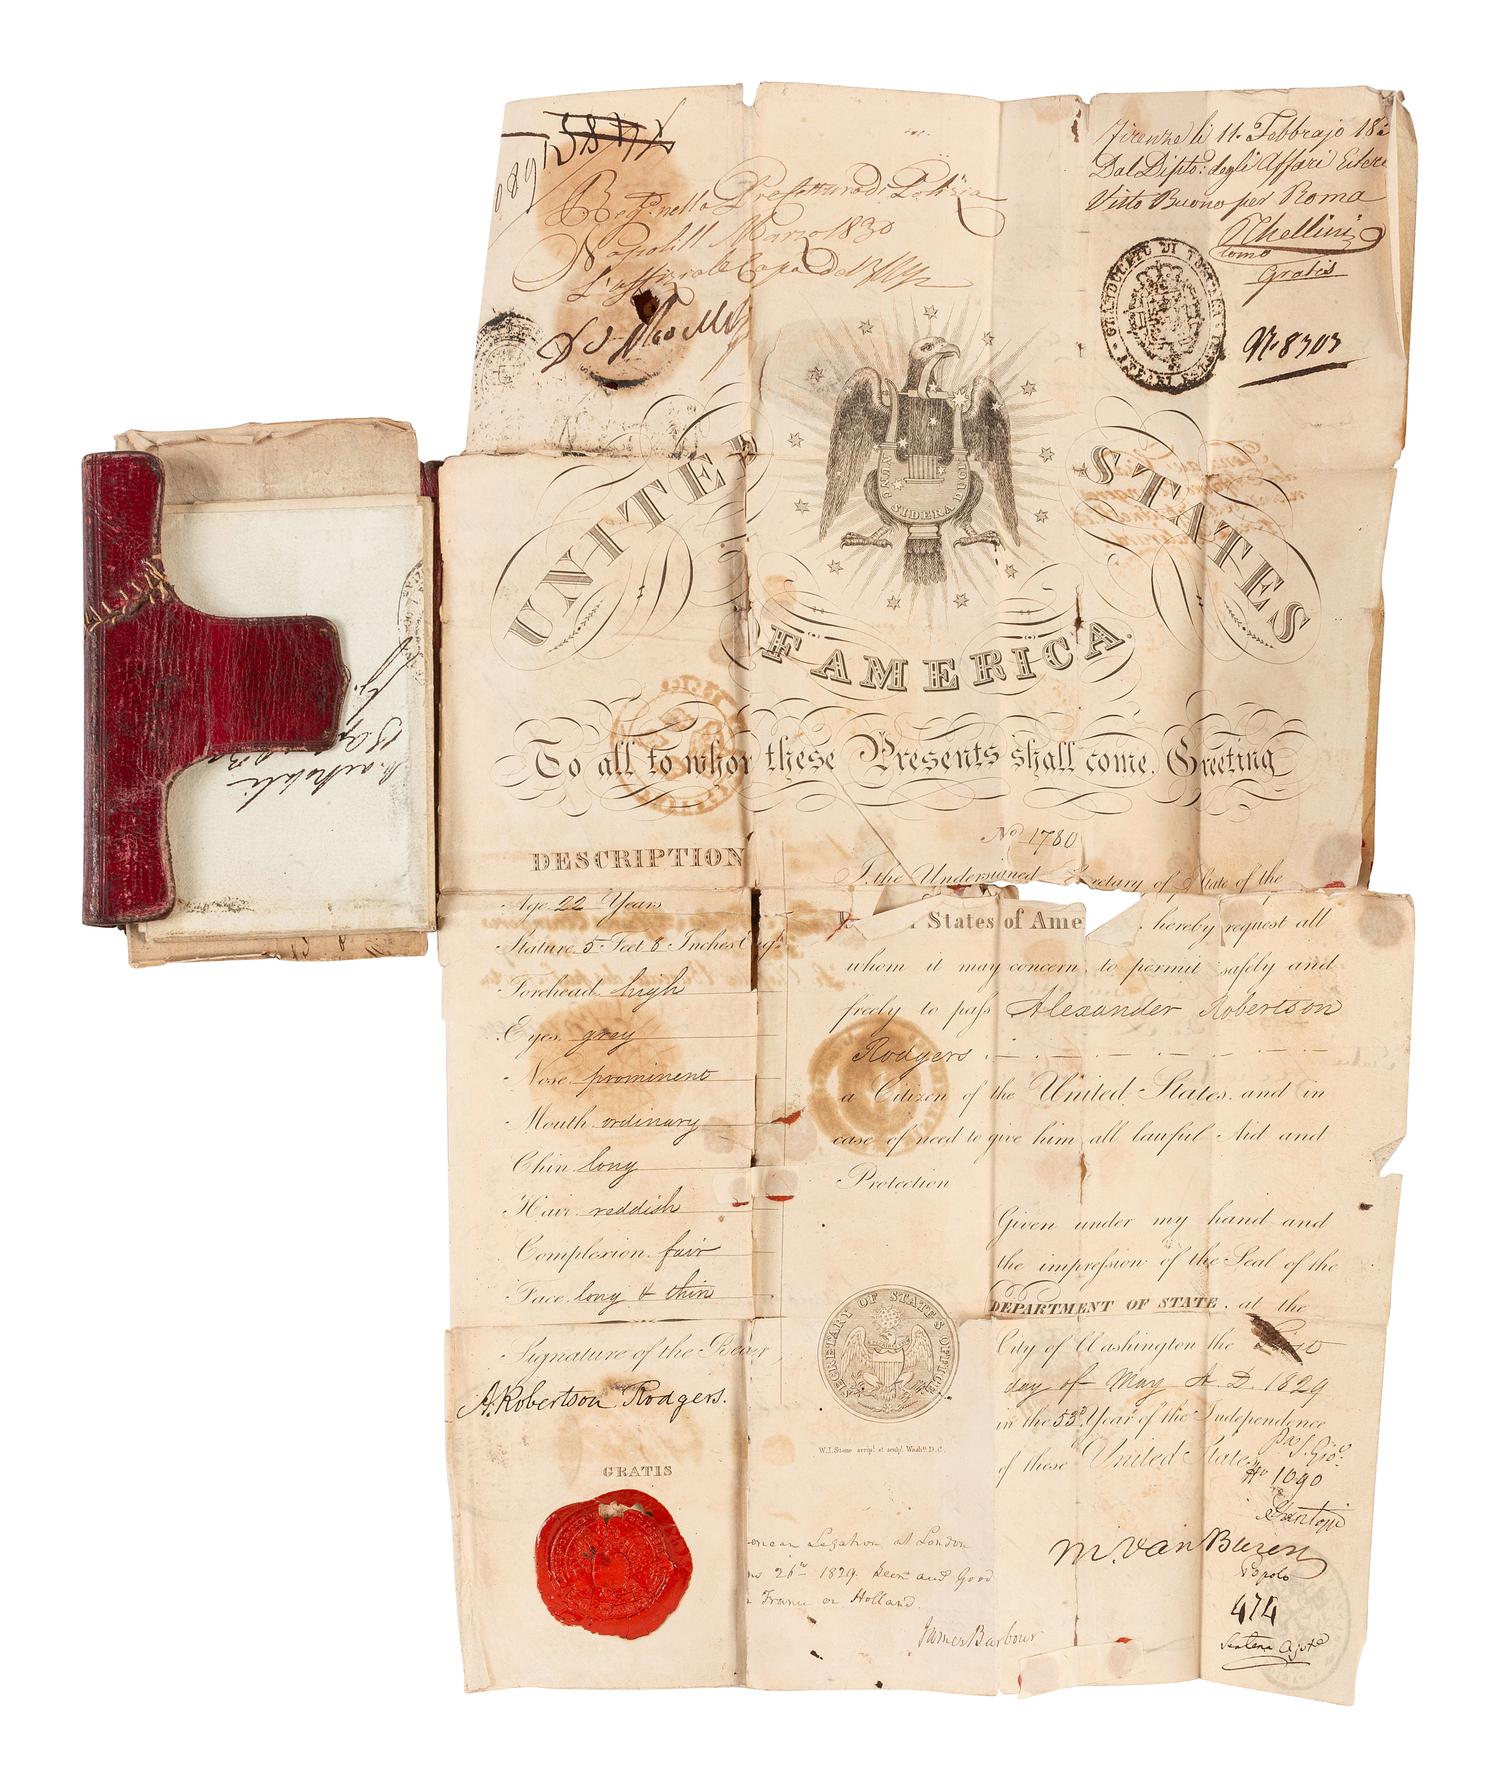 Reg.to nella Prefettura di Polizia
Napoli 11 Marzo 1830
Firenze li 11. Febbrajo 18
Dal Dipto: degli Affari Esteri
Visto Buono per Roma
Gratis
Nº 8303
GRANDUCATO DI TOSCANA
NUNC SIDERA DUCIT
UNITED STATES
OF AMERICA.
To all to whom these Presents shall come, Greeting
Nº 1780
DESCRIPTION
Age 22 Years
Stature 5 Feet 8 Inches Engh
Forehead high
Eyes grey
Nose prominent
Mouth ordinary
Chin long
Hair reddish
Complexion fair
Face long & thin
Signature of the Bearer
A. Robertson Rodgers.
GRATIS
I, the Undersigned Secretary of State of the
States of Ame hereby request all
whom it may concern, to permit safely and
freely to pass Alexander Robertson
Rodgers
a Citizen of the United States, and in
case of need to give him all lawful Aid and
Protection
Given under my hand and
the impression of the Seal of the
DEPARTMENT OF STATE, at the
City of Washington the
day of May A. D. 1829
in the 53d Year of the Independence
of these United States
SECRETARY OF STATE'S OFFICE
W.I. Stone script. et sculpt. Washn. D.C.
Nº 1090
M. Van Buren
Popolo
474
erican Legation at London
26th 1829. Seen and Good
France or Holland.
James Barbour